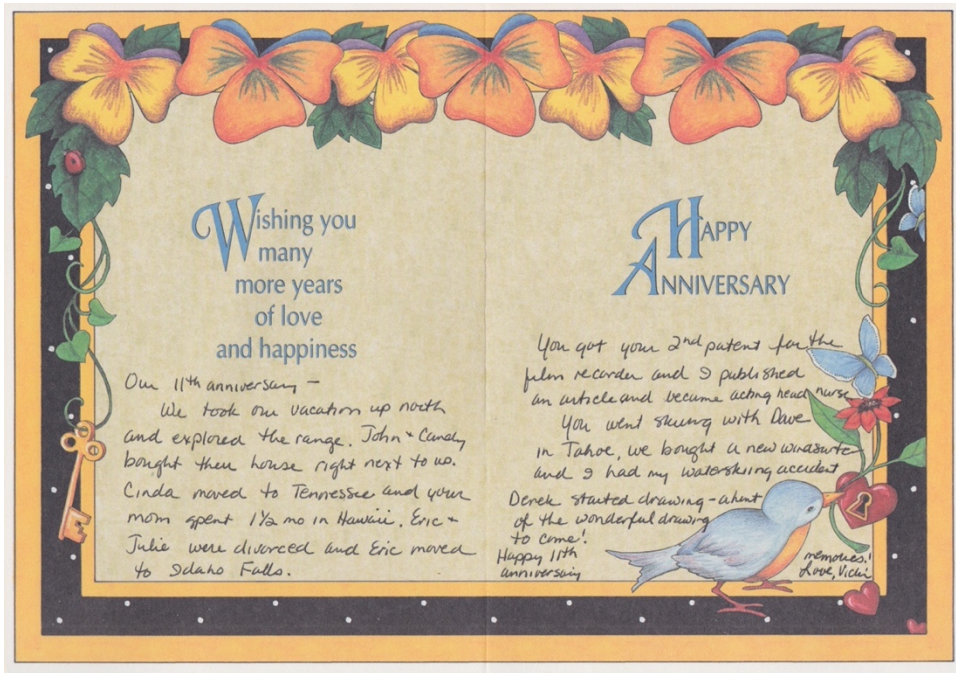 Wishing you
many
more years
of love
and happiness
Our 11th anniversary –
We took our vacation up north
and explored the range. John + Candy
bought their house right next to us.
Cinda moved to Tennessee and your
mom spent 1½ mo in Hawaii. Eric +
Julie were divorced and Eric moved
to Idaho Falls.
HAPPY
ANNIVERSARY
You got your 2nd patent for the
film recorder and I published
an article and became acting head nurse
You went skiing with Dave
in Tahoe, we bought a new windsurfer
and I had my waterskiing accident
Derek started drawing – a hint
of the wonderful drawing
to come!
Happy 11th
anniversary
memories!
Love, Vicki